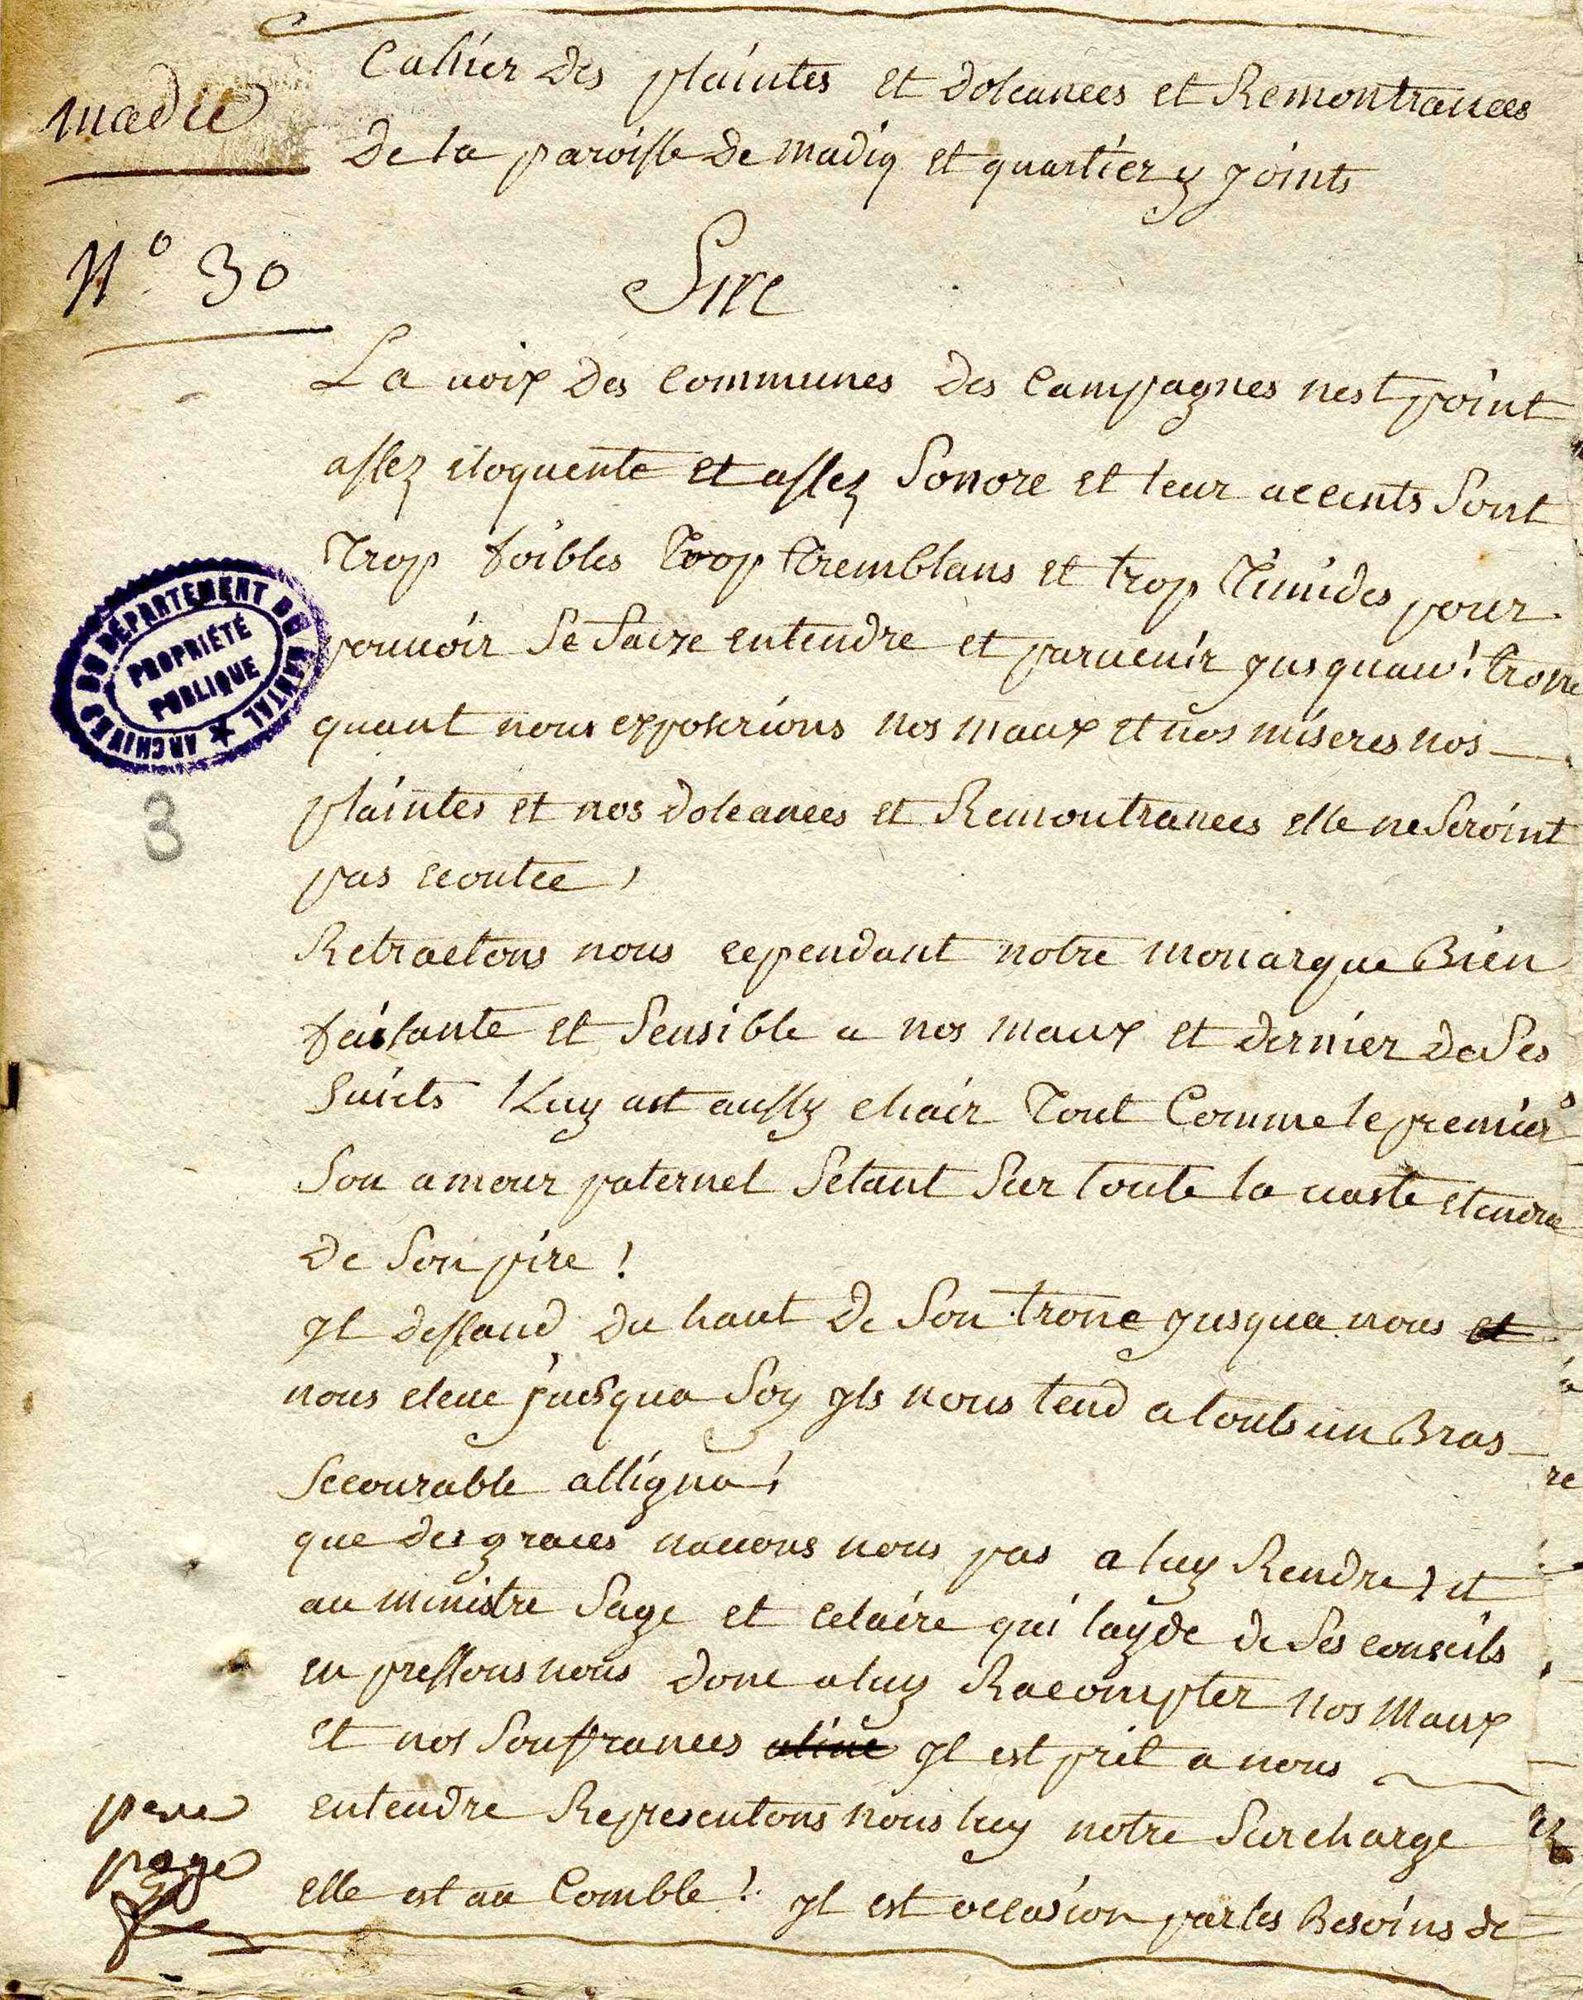 Cahier des plaintes et doleances et Remontrances
madic
de la paroisse de madiq et quartier y joints
N° 30
Sire
La voix des communes des campagnes nest point
assez eloquente et assez sonore et leur accents sont
trop foibles trop tremblans et trop timides pour
pouvoir se faire entendre et parvenir jusquau! trone
quant nous exposerions nos maux et nos miseres nos
plaintes et nos doleances et Remontrances elle ne seroint
pas ecoutee,
ARCHIVES DU DÉPARTEMENT DU CANTAL
PROPRIÉTÉ
PUBLIQUE
3
Retractons nous cependant notre monarque Bien
faisante et sensible a nos maux et dernier de ses
suiets luy est aussy chair tout comme le premier
son amour paternel setant sur toute la vaste etendue
de son pire!
yl dessand du haut de son trone jusqua nous et
nous eleve jusqua soy yls nous tend a touts un Bras
secourable alligna!
que des graces navons nous pas a luy Rendre, et
au ministre sage et eclaire qui layde de ses conseils
en pressons nous donc a luy Racompter nos maux
et nos soufrances yl est prit a nous
entendre Representons nous luy notre surcharge
elle est au comble! yl est occasion par les Besoins de
page